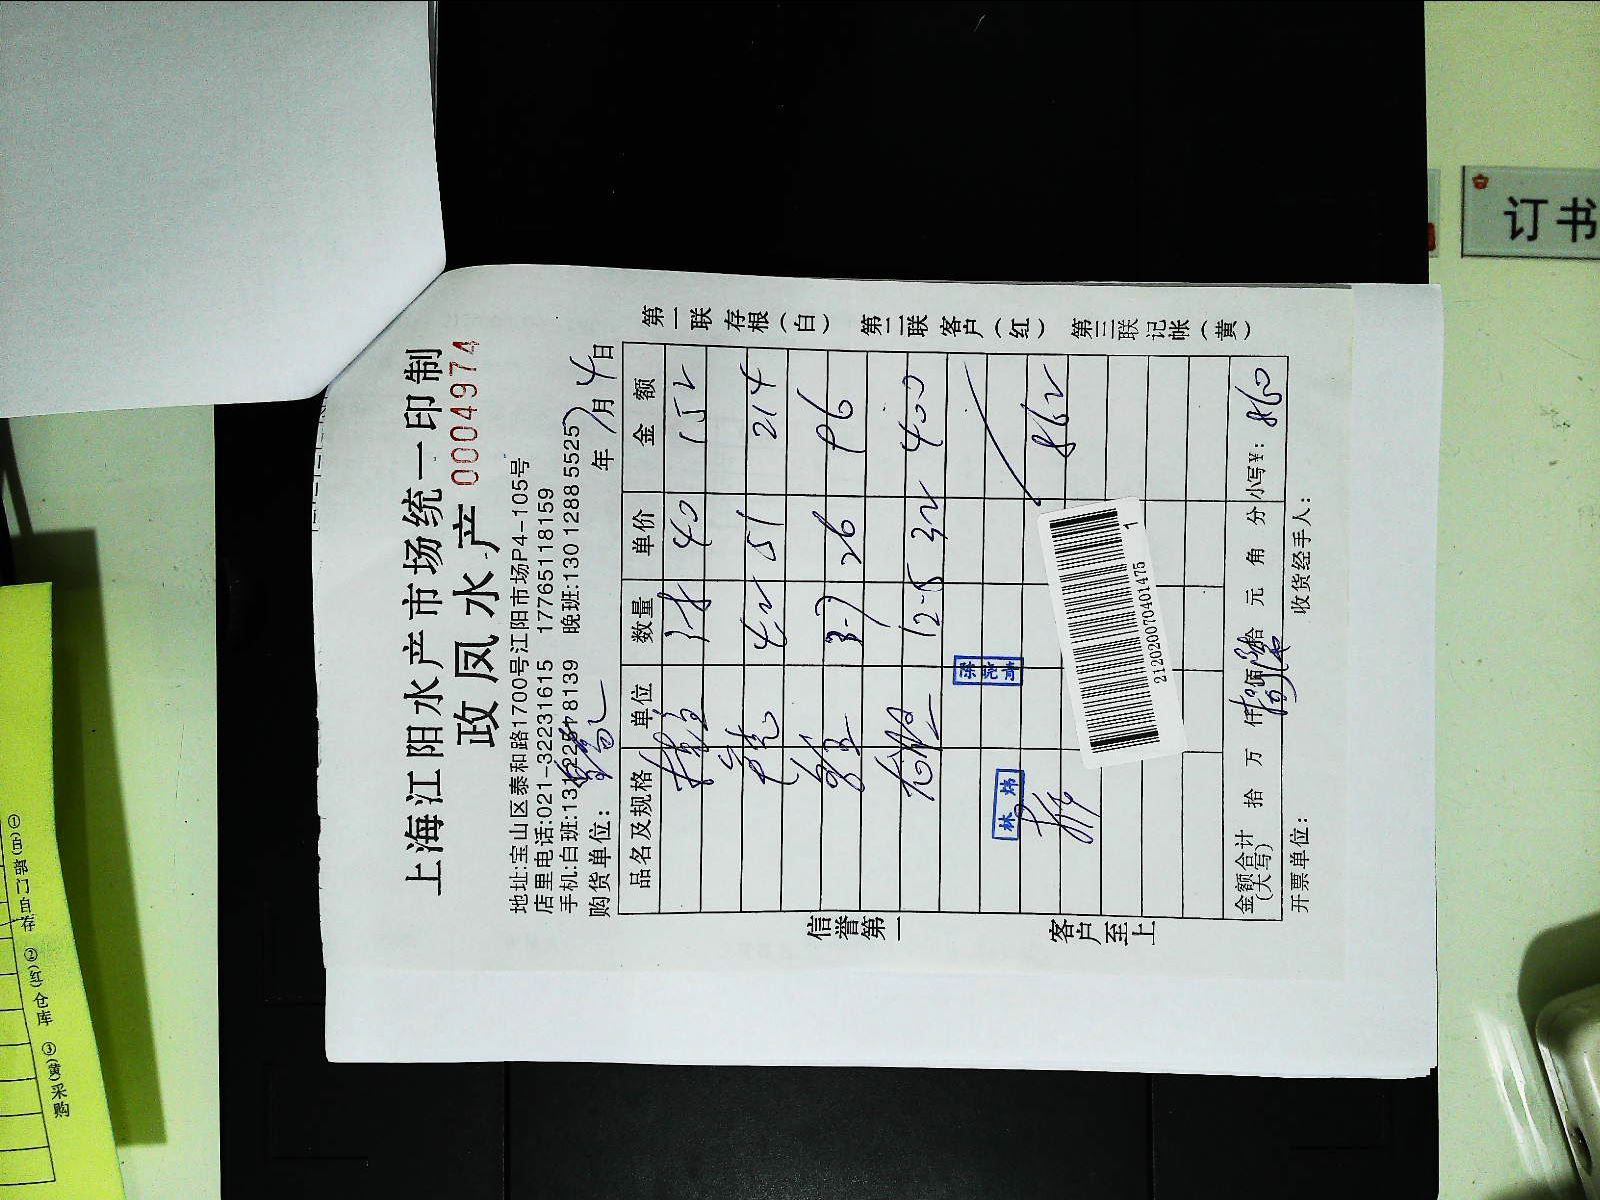 上海江阳水产市场统一印制
政凤水产 0004974
地址:宝山区泰和路1700号江阳市场P4-105号
店里电话:021-32231615 17765118159
手机:白班:131 2251 8139 晚班:130 1288 5525
购货单位: 年 7月4日
品名及规格 单位 数量 单价 金额
3.8 40 152
4.2 51 214
3-7 26 96
12-5 32 400
862
金额合计(大写) 拾 万 仟 佰 拾 元 角 分 小写¥: 860
开票单位: 收货经手人:
信誉第一 客户至上
第一联存根(白) 第二联客户(红) 第三联记帐(黄)
林炜
212020070401475
1
订书
①(白)部门自存 ②(红)仓库 ③(黄)采购